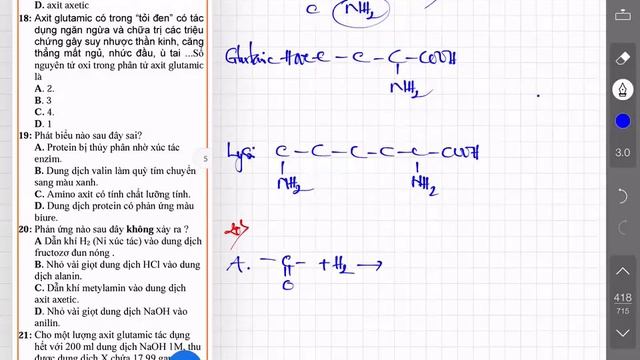 D. axit axetic
18: Axit glutamic có trong "tỏi đen" có tác
dụng ngăn ngừa và chữa trị các triệu
chứng gây suy nhược thần kinh, căng
thẳng mất ngủ, nhức đầu, ù tai ...Số
nguyên tử oxi trong phân tử axit glutamic
là
A. 2.
B. 3
C. 4.
D. 1
19: Phát biểu nào sau đây sai?
A. Protein bị thủy phân nhờ xúc tác
enzim.
B. Dung dịch valin làm quỳ tím chuyển
sang màu xanh.
C. Amino axit có tính chất lưỡng tính.
D. Dung dịch protein có phản ứng màu
biure.
20: Phản ứng nào sau đây không xảy ra ?
A Dẫn khí H2 (Ni xúc tác) vào dung dịch
fructozơ đun nóng .
B. Nhỏ vài giọt dung dịch HCl vào dung
dịch alanin.
C. Dẫn khí metylamin vào dung dịch
axit axetic.
D. Nhỏ vài giọt dung dịch NaOH vào
anilin.
21: Cho một lượng axit glutamic tác dụng
hết với 200 ml dung dịch NaOH 1M, thu
được dung dịch X chứa 17,99 gam
5
C NH2
C - C - C - COOH
NH2
C - C - C - C - C - COOH
NH2 NH2
A. - C - + H2 →
O
3.0
418
715